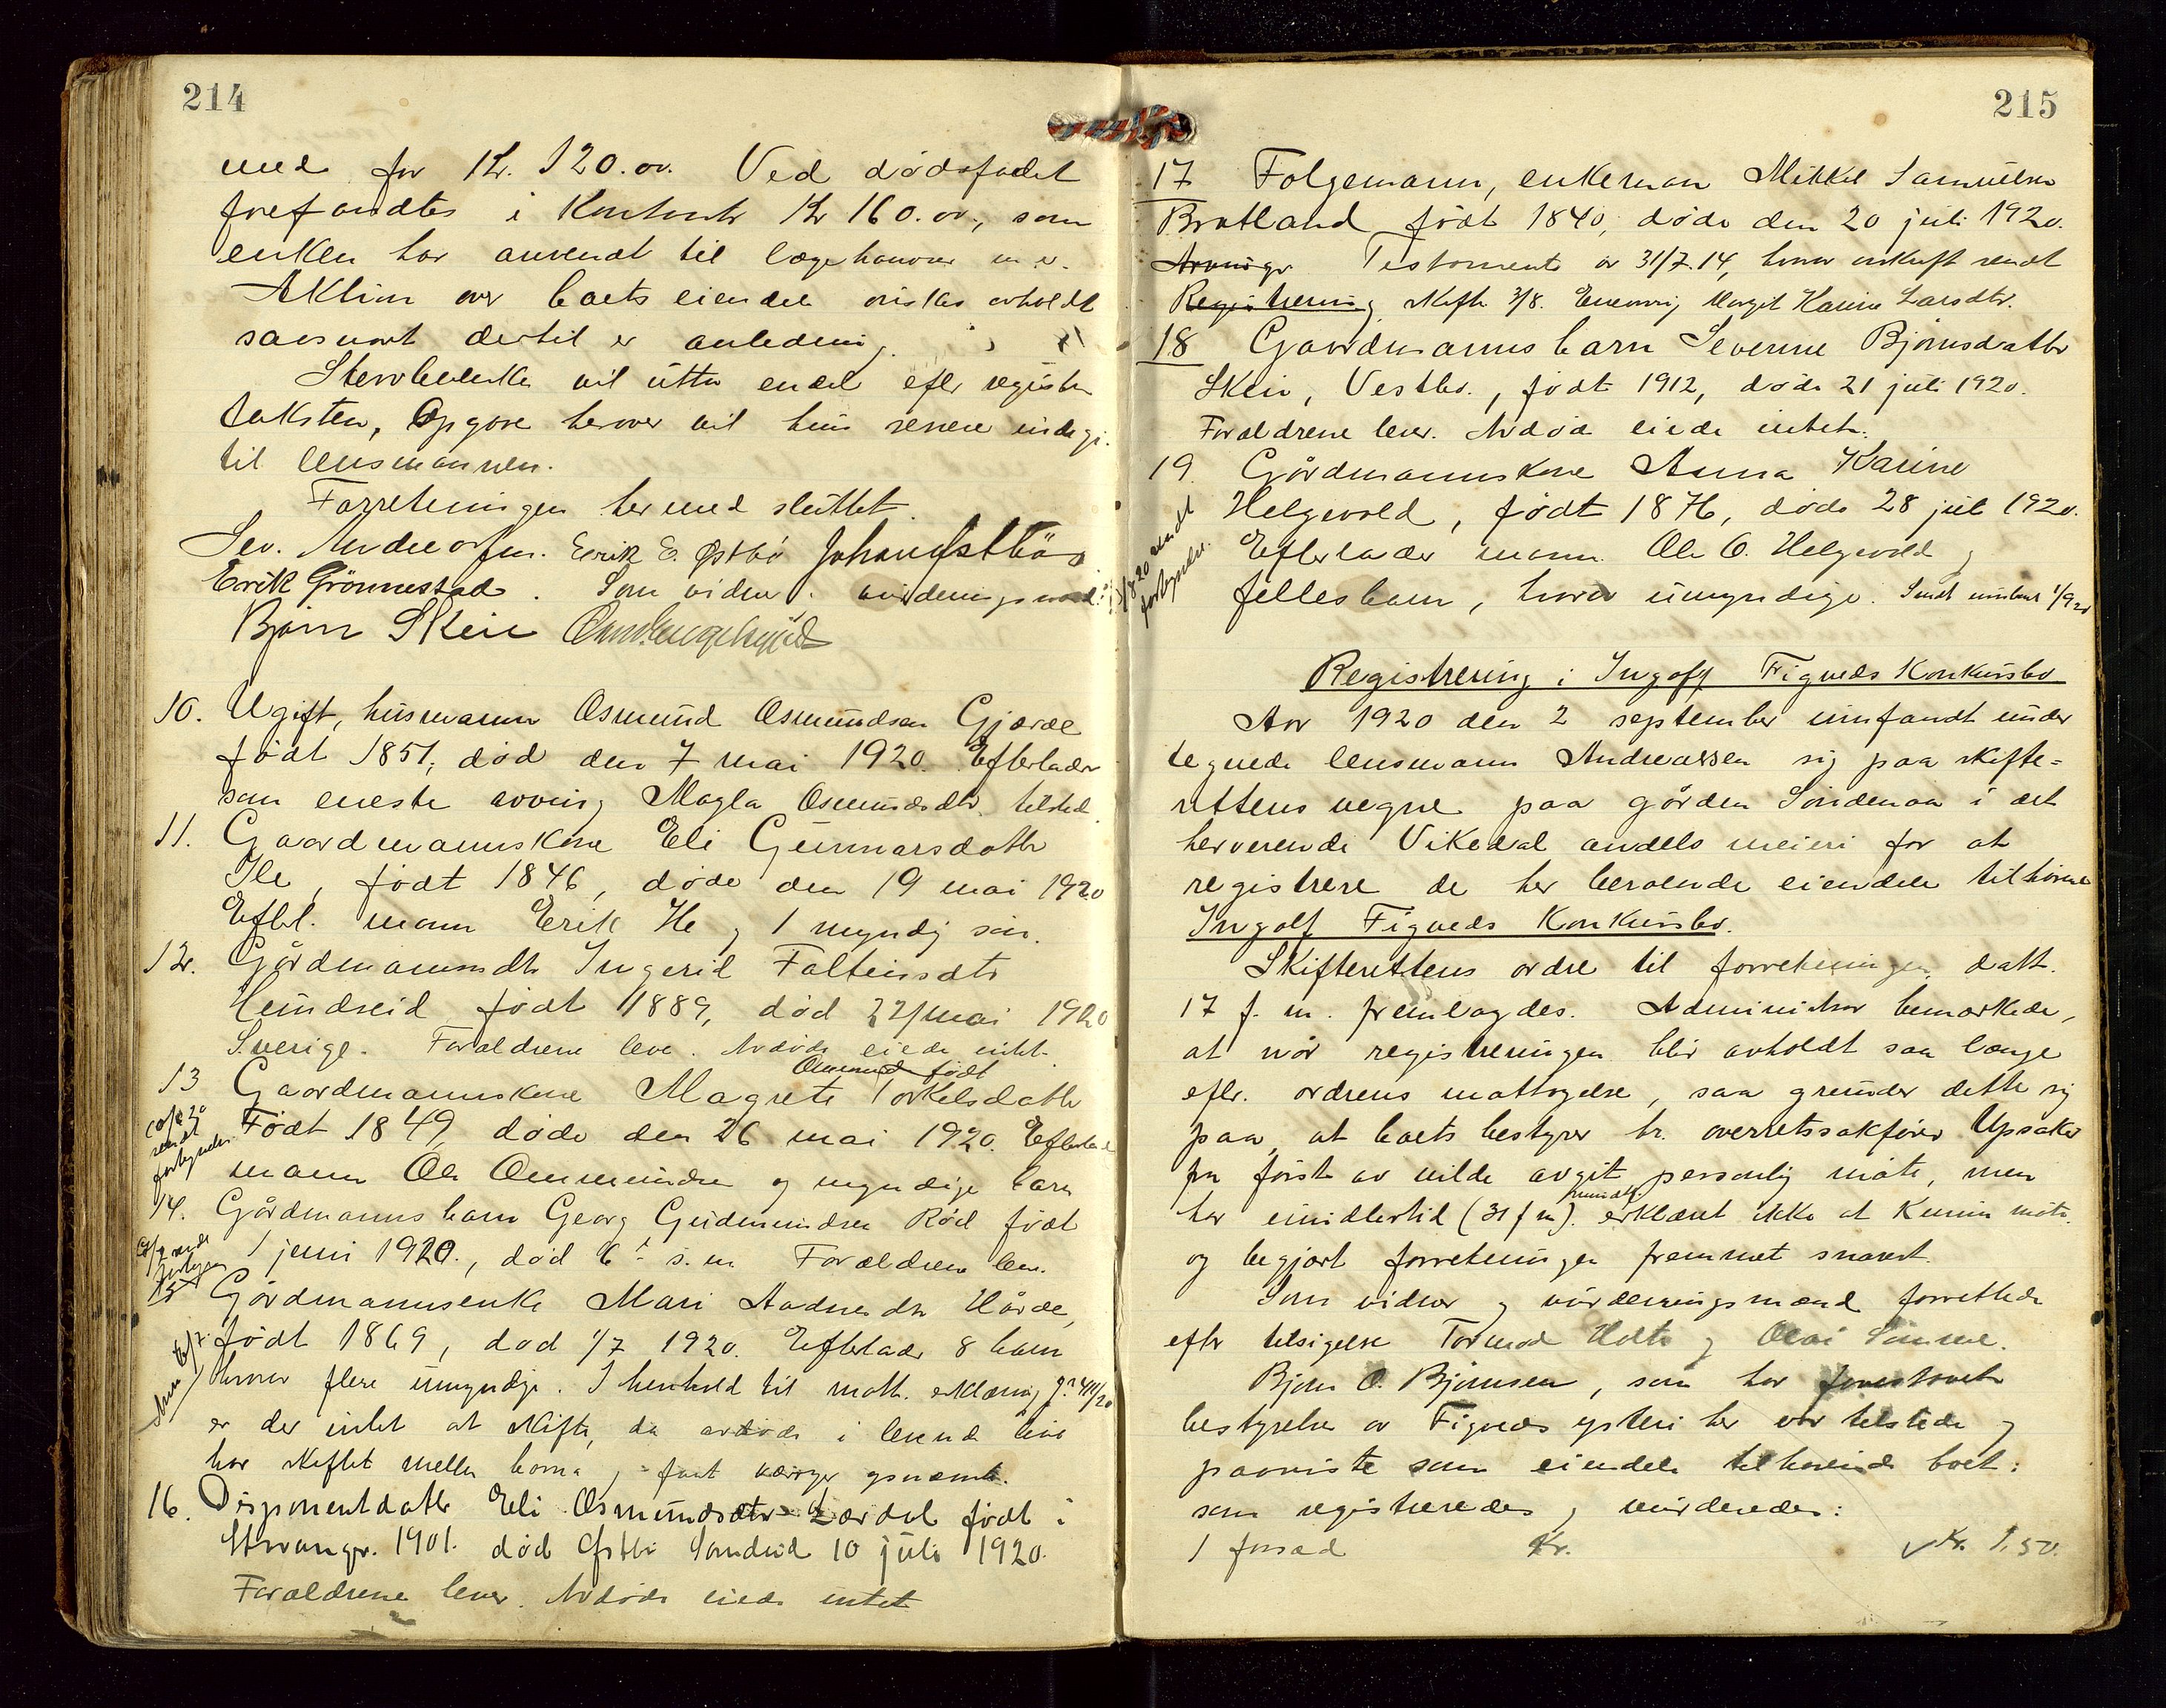 214
med for Kr. 120.00. Ved dødsfaldet
forefandtes i Kontanter Kr 160.00, som
enken har anvendt til lægehonorar m.v.
Aktion over boets eiendele ønskes avholdt
saasnart dertil er anledning.
Stervboenken vil utta endel efter registr
taksten, Opgave herover vil hun senere indgi.
til lensmannen.
Forretningen hermed sluttet.
Sev. Andreassen. Eerik E. Østbö Johan Östbö
Eerik Grönnestad. Som vidner. vurderingsmænd:
Björn Skeie
10. Ugift, husmann Osmund Osmundsen Gjærde
født 1851, død den 7 mai 1920. Efterlader
som eneste arving Magla Osmundsdtr. tilsted.
11. Gaardmannskone Eli Gunnarsdatter
Ile, født 1846, døde den 19 mai 1920
Efterl. mann Eerik Ile og 1 myndig søn.
12. Gårdmannsdtr Ingerid Falteinsdtr
Hundseid født 1889, død 22/mai 1920
Sverige. Forældrene leve. Avdøde eiede intet.
Ommund født
13 Gaardmannskone Magrete Torkelsdatter
Født 1849, døde den 26 mai 1920. Efterlad
sendt forlegnelse
mann Ole Ommundsen og myndige barn
14. Gårdmannsbarn Georg Gudmundsen Rød født
1 juni 1920., død 6 - s.m Forældrene lever.
15 Gårdmannsenke Mari Aadnesdtr Hårde,
født 1869, død 1/7 1920. Efterlader 8 barn
hvorav flere umyndige. I henhold til mott. erklæring
er der intet at skifte, da avdøde i levende live
har skiftet mellem barna og faat værger opnævnt.
16. Disponentdatter Eli Osmundsdtr Lærdal født i
Stavanger. 1901. død Østbö Sandeid 10 juli 1920.
Forældrene lever. Avdøde eiede intet
215
17 Folgemann, enkeman Mikkel Samuelsen
Bratland født 1840, døde den 20 juli 1920.
Arvinger Testamente av 31/7.14, hvorav avskrift sendt
Registrering Skifte 3/8. Enearving Marget Karine Larsdtr.
18 Gaardmannsbarn Severine Bjørnsdatter
Skeie, Vestbø., født 1912, døde 21 juli 1920.
Forældrene lever. Avdøde eiede intet.
19. Gårdmannskone Anna Karine
Helgevold, født 1876, døde 28 juli 1920.
Efterlader mann Ole O. Helgevold og
fellesbarn, hvorav umyndige.
Registrering i Ingolf Fignæds Konkursbo
Aar 1920 den 2 september innfandt under
tegnede lensmann Andreassen sig paa skifte-
rettens vegne paa gården Søndenaa i det
herverende Vikedal andels meieri for at
registrere de her beroende eiendele tilhørende
Ingolf Fignæds Konkursbo.
Skifterettens ordre til forretningen datt.
17 f. m. fremlagdes. Administrator bemærkede,
at når registreringen blir avholdt saa længe
efter. ordrens mottagelse, saa grunder dette sig
paa, at boets bestyrer hr. overretssakfører Upsaker
fra først av vilde avgit personlig møte, men
mundtlig
har imidlertid (31 f m). erklæret ikke at kunne møte
og begjært forretningen fremmet snarest.
Som vidner og vurderingsmænd forrettede
efter tilsigelse Tormod Holte og Olai Sønnene.
Bjørn O. Bjørnsen, som har forestaaet
bestyrelse av Fignæs ysteri her var tilstede og
paaviste som eiendele tilhørende boet:
som registreredes og vurderedes:
1 forsæd Kr. Kr. 1.50.